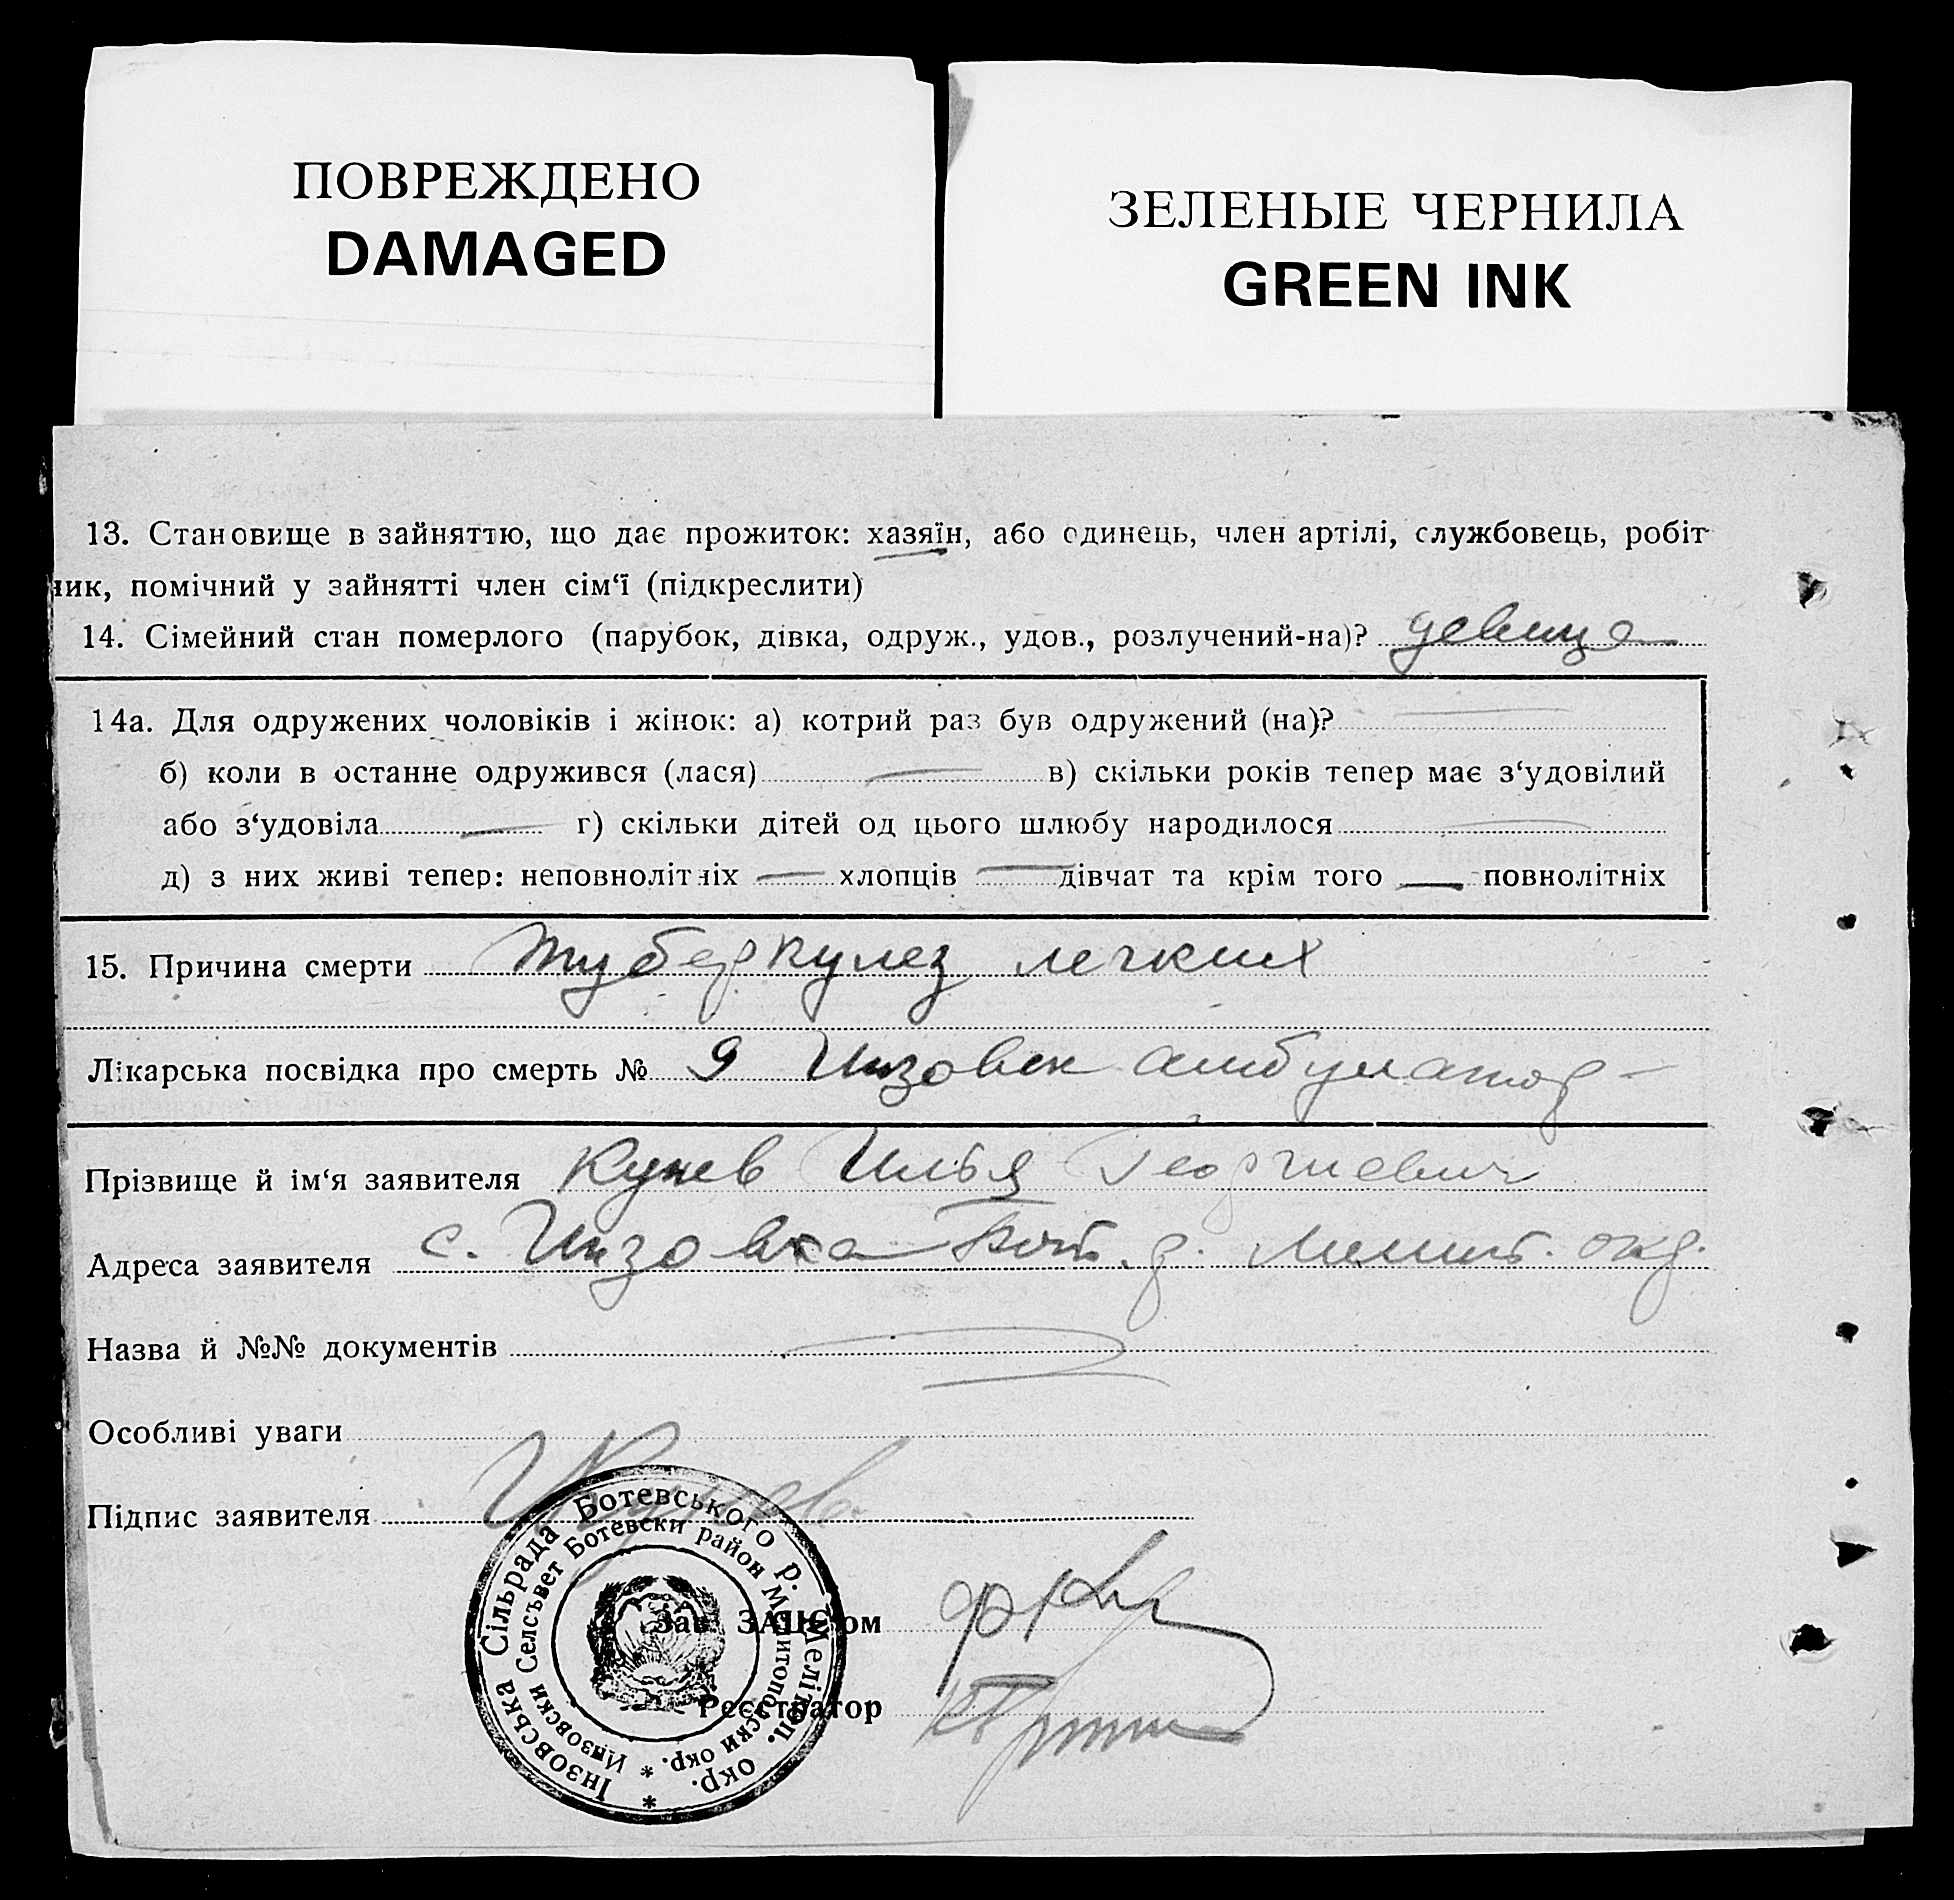 ПОВРЕЖДЕНО
DAMAGED
ЗЕЛЕНЫЕ ЧЕРНИЛА
GREEN INK
13. Становище в зайняттю, що дає прожиток: хазяїн, або одинець, член артілі, службовець, робіт
ник, помічний у зайнятті член сім‘ї (підкреслити)
14. Сімейний стан померлого (парубок, дівка, одруж., удов., розлучений-на)? девица
14а. Для одружених чоловіків і жінок: а) котрий раз був одружений (на)?
б) коли в останне одружився (лася) — в) скільки років тепер має з‘удовілий
або з‘удовіла — г) скільки дітей од цього шлюбу народилося —
д) з них живі тепер: неповнолітніх — хлопців — дівчат та крім того — повнолітніх
15. Причина смерти туберкулез легких
Лікарська посвідка про смерть № 9 Инзовск амбулатор-
Прізвище й ім‘я заявителя Кунев Илья Георгиевич
Адреса заявителя с. Инзовка Бот. р. Мелит. окр.
Назва й №№ документів
Особливі уваги
Підпис заявителя
Інзовська Сільрада Ботевського р. Мелітоп. окр. *
Инзовски Селсъвет Ботевски район Мелитополски окр. *
Зав. ЗАЦСом
Реєстратор